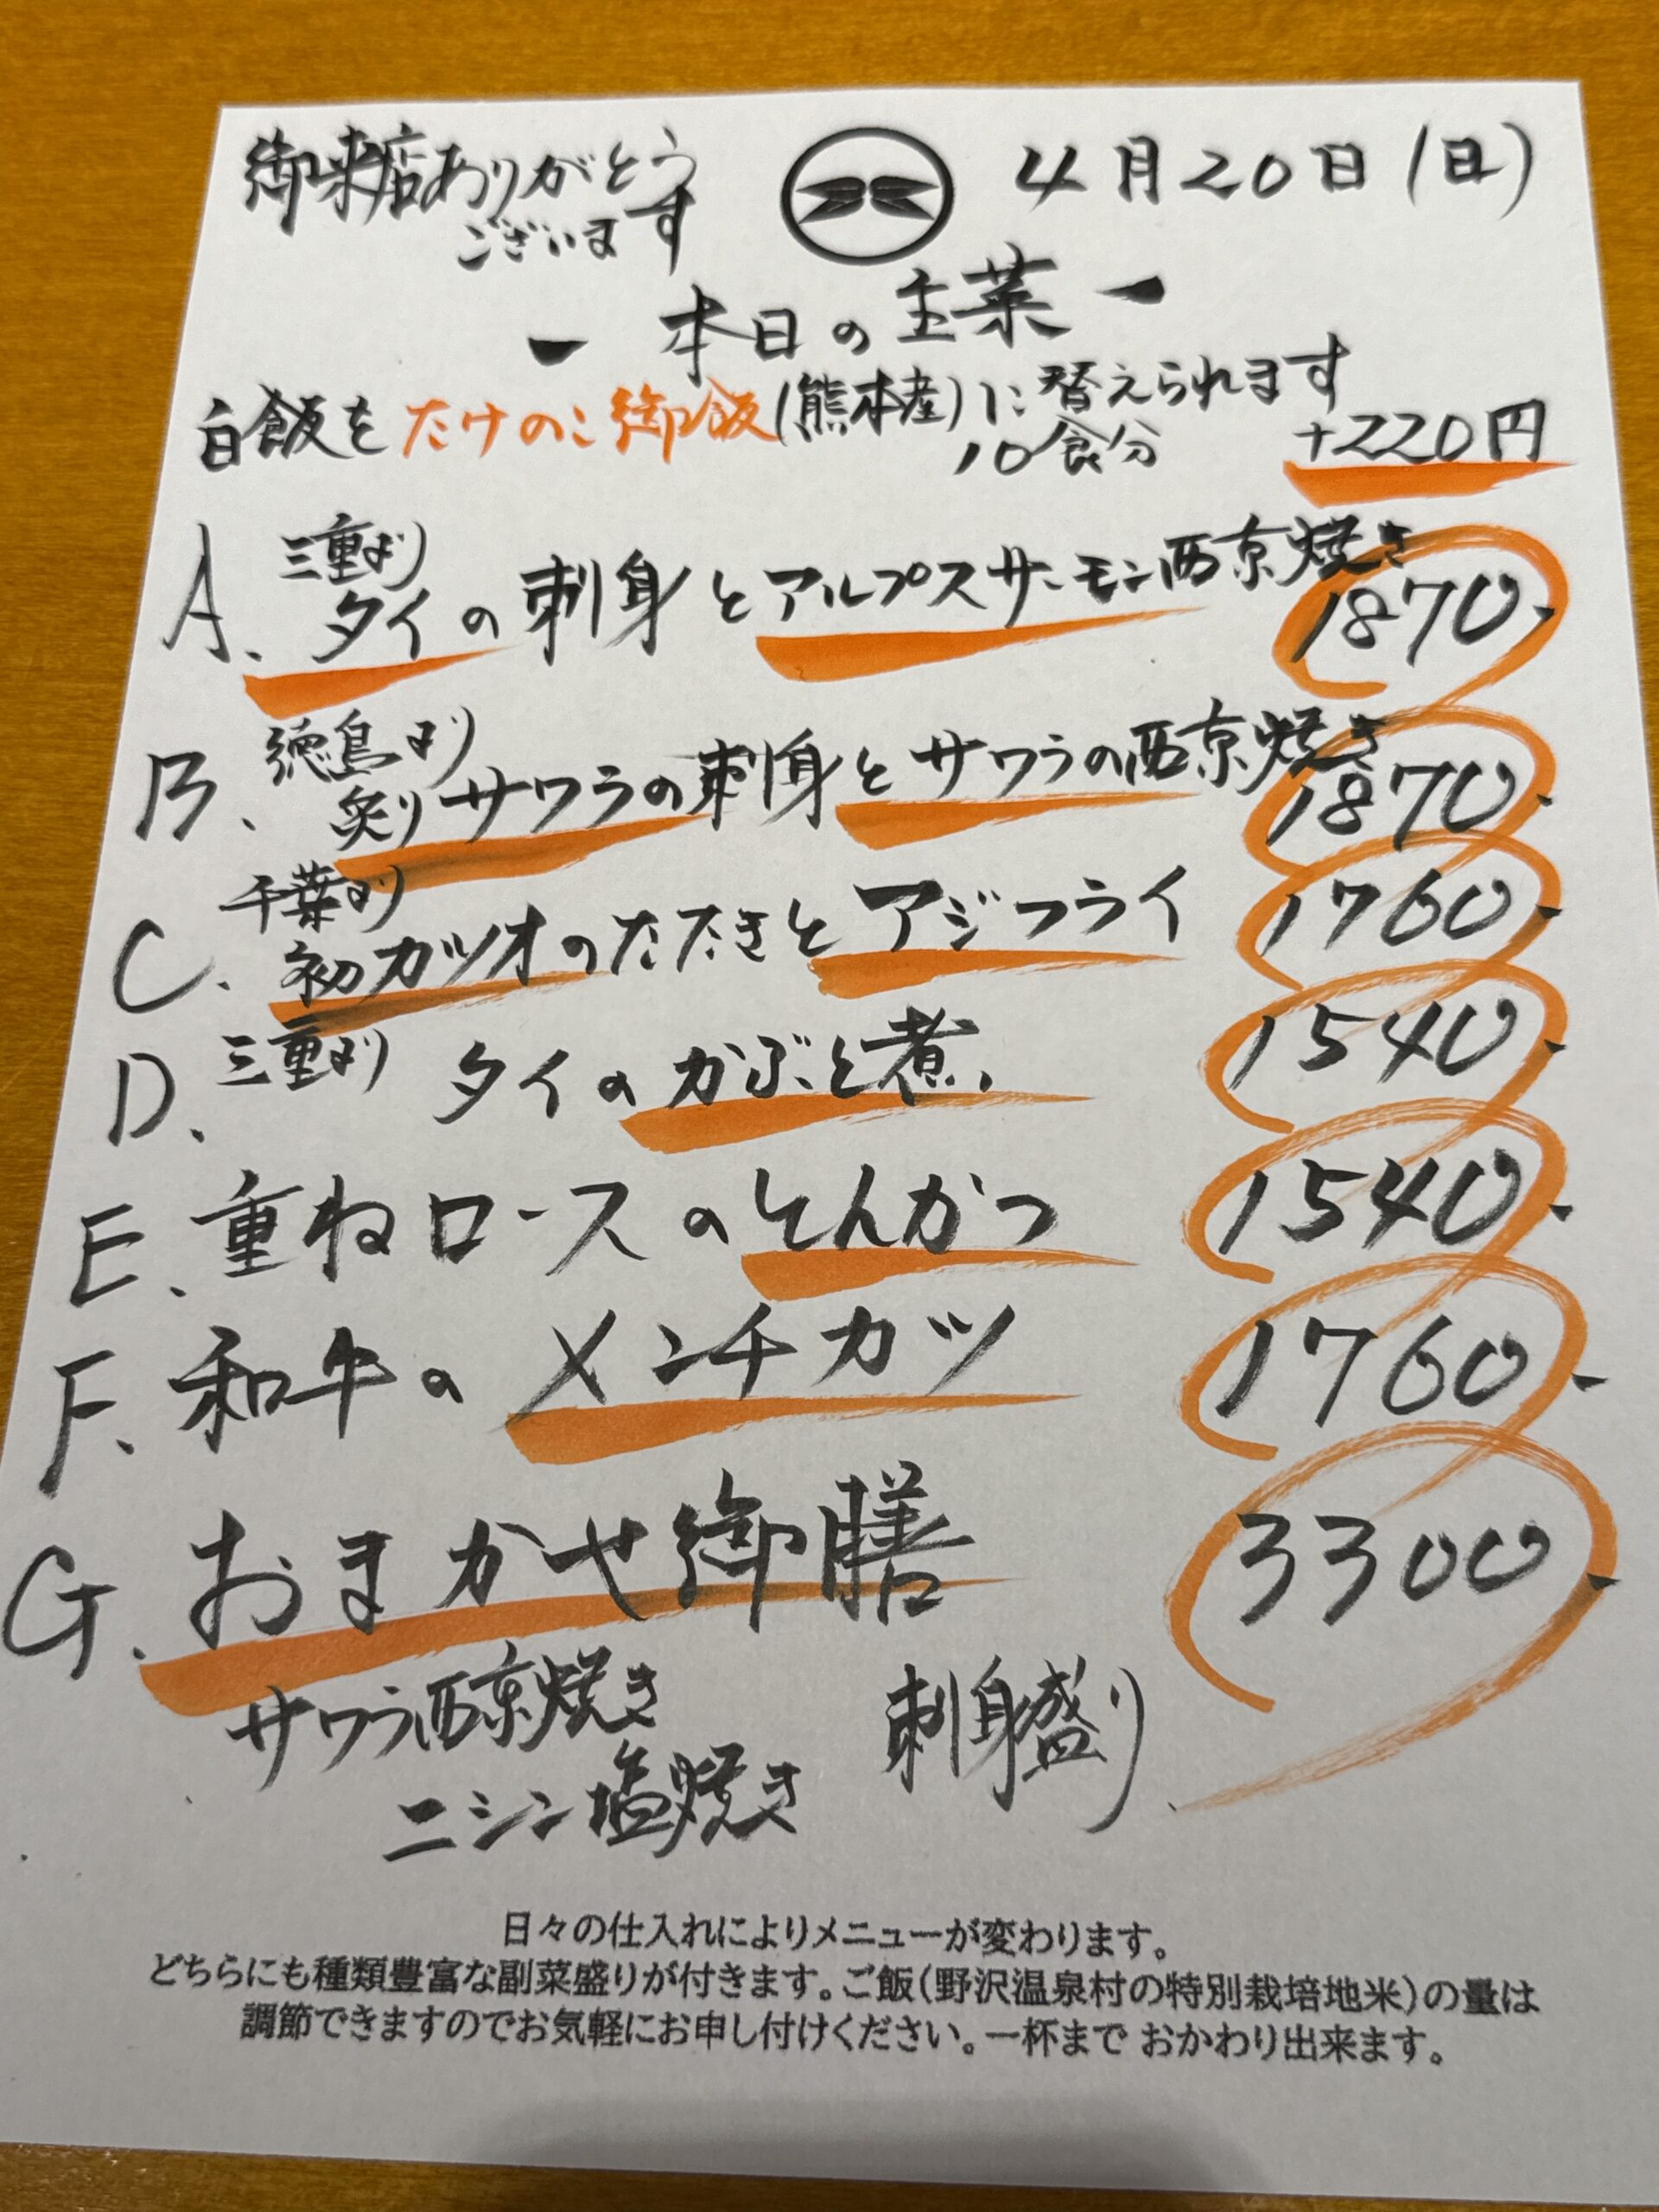 御来店ありがとう
ございます
4月20日(日)
ー 本日の主菜 ー
白飯をたけのこ御飯(熊本産)に替えられます
10食分 +220円
三重より
A. タイの刺身とアルプスサーモン西京焼き 1870.
徳島より
B. 炙りサワラの刺身とサワラの西京焼き 1870.
千葉より
C. 初カツオのたたきとアジフライ 1760.
D. 三重より タイのかぶと煮. 1540.
E. 重ねロースのとんかつ 1540.
F. 和牛のメンチカツ 1760.
G. おまかせ御膳 3300.
サワラ西京焼き 刺身盛り
ニシン塩焼き
日々の仕入れによりメニューが変わります。
どちらにも種類豊富な副菜盛りが付きます。ご飯(野沢温泉村の特別栽培地米)の量は
調節できますのでお気軽にお申し付けください。一杯まで おかわり出来ます。